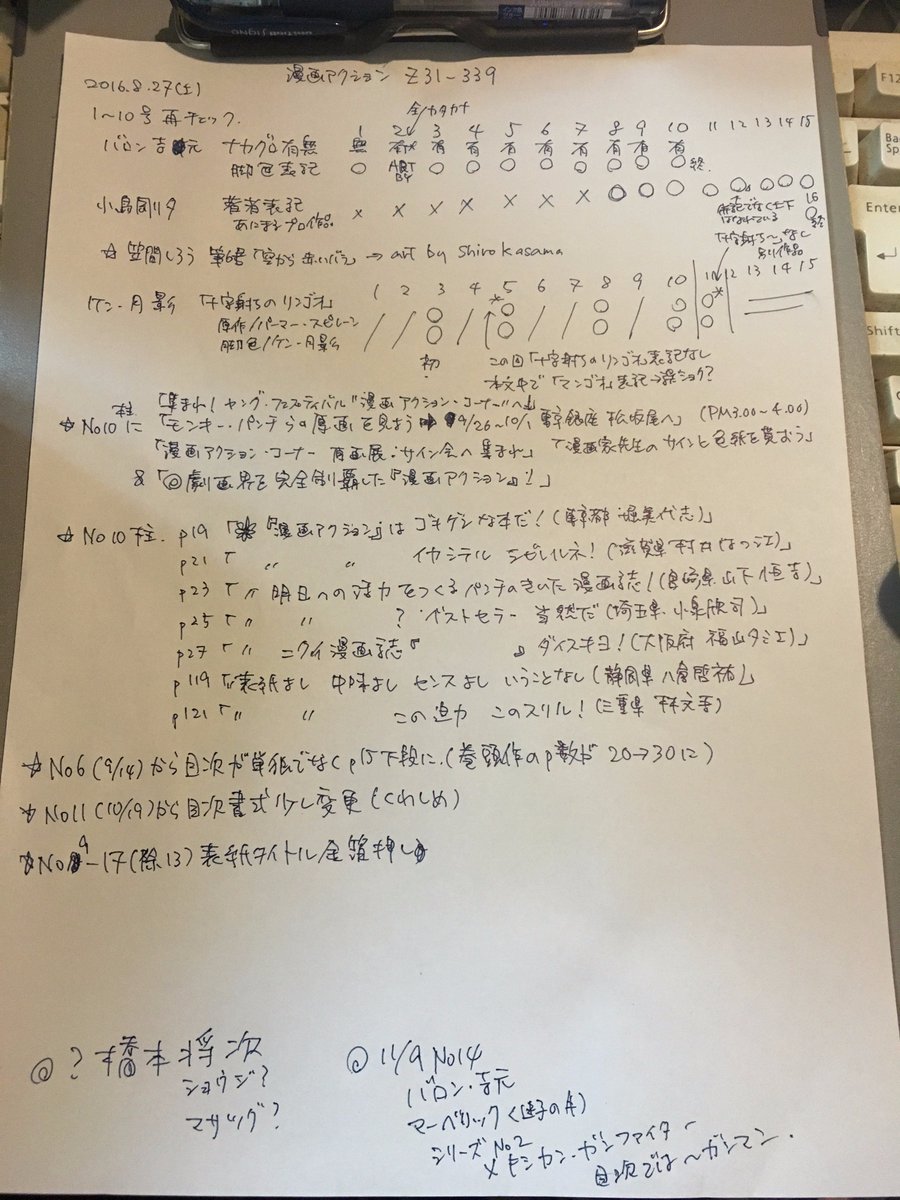 漫画アクション Z31-339
2016.8.27(土)
1〜10号再チェック.
全カタカナ
1 2 3 4 5 6 7 8 9 10 11 12 13 14 15
バロン吉元 ナカグロ有無 無 有 有 有 有 有 有 有 有
脚色表記 ○ ART BY ○ ○ ○ ○ ○ ○ ○ ○ 終.
小島剛夕 著者表記 × × × × × × × ○ ○ ○ ○ ○ ○ ○ ○
16
○
終
☆ 笠間しろう 第6号「空から赤いバラ」→ art by Shiro Kasama
別作品
1 2 3 4 5 6 7 8 9 10 11 12 13 14 15
ケン・月影 「十字射ちのリンゴォ」
原作/パーマー・スピレーン
脚色/ケン・月影
初
この回「十字射ちのリンゴォ」表記なし
本文中で「マンゴォ」表記→誤ショク?
「集まれ!ヤング・フェスティバル"漫画アクション・コーナー"へ」
☆No10柱に「モンキー・パンチらの原画を見よう 9/26〜10/1、東京銀座 松坂屋へ」(PM3.00〜4.00)
「漫画アクション・コーナー 原画展・サイン会へ集まれ」「漫画家先生のサインと色紙を貰おう」
&「@劇画界を完全制覇した『漫画アクション』!」
☆No10柱. p19「『漫画アクション』はゴキゲンな本だ!(東京都 堀美代志)」
p21「 〃 〃 イカシテル シビレルネ!(滋賀県 村井なつ江)」
p23「〃 明日への活力をつくるパンチのきいた漫画誌!(宮崎県 山下恒吉)」
p25「〃 〃 ? ベストセラー 当然だ(埼玉県 小泉欣司)」
p27「〃 ニクイ漫画誌『 』ダイスキヨ!(大阪府 福山タミ江)」
p119「表紙よし 中味よし センスよし いうことなし(静岡県 八尾哲祐)」
p121「〃 〃 この迫力 このスリル!(三重県 林文吾)
☆No6(9/14)から目次が単独でなくp15下段に.(巻頭作のp数が20→30に)
☆No11(10/19)から目次書式少し変更(くわしめ)
☆No9-17(除13)表紙タイトル金箔押し
@? 橋本将次
ショウジ?
マサツグ?
@ 11/9 No14
バロン・吉元
マーベリック
シリーズNo2
メキシカン・ガンファイター
目次では〜ガンマン.